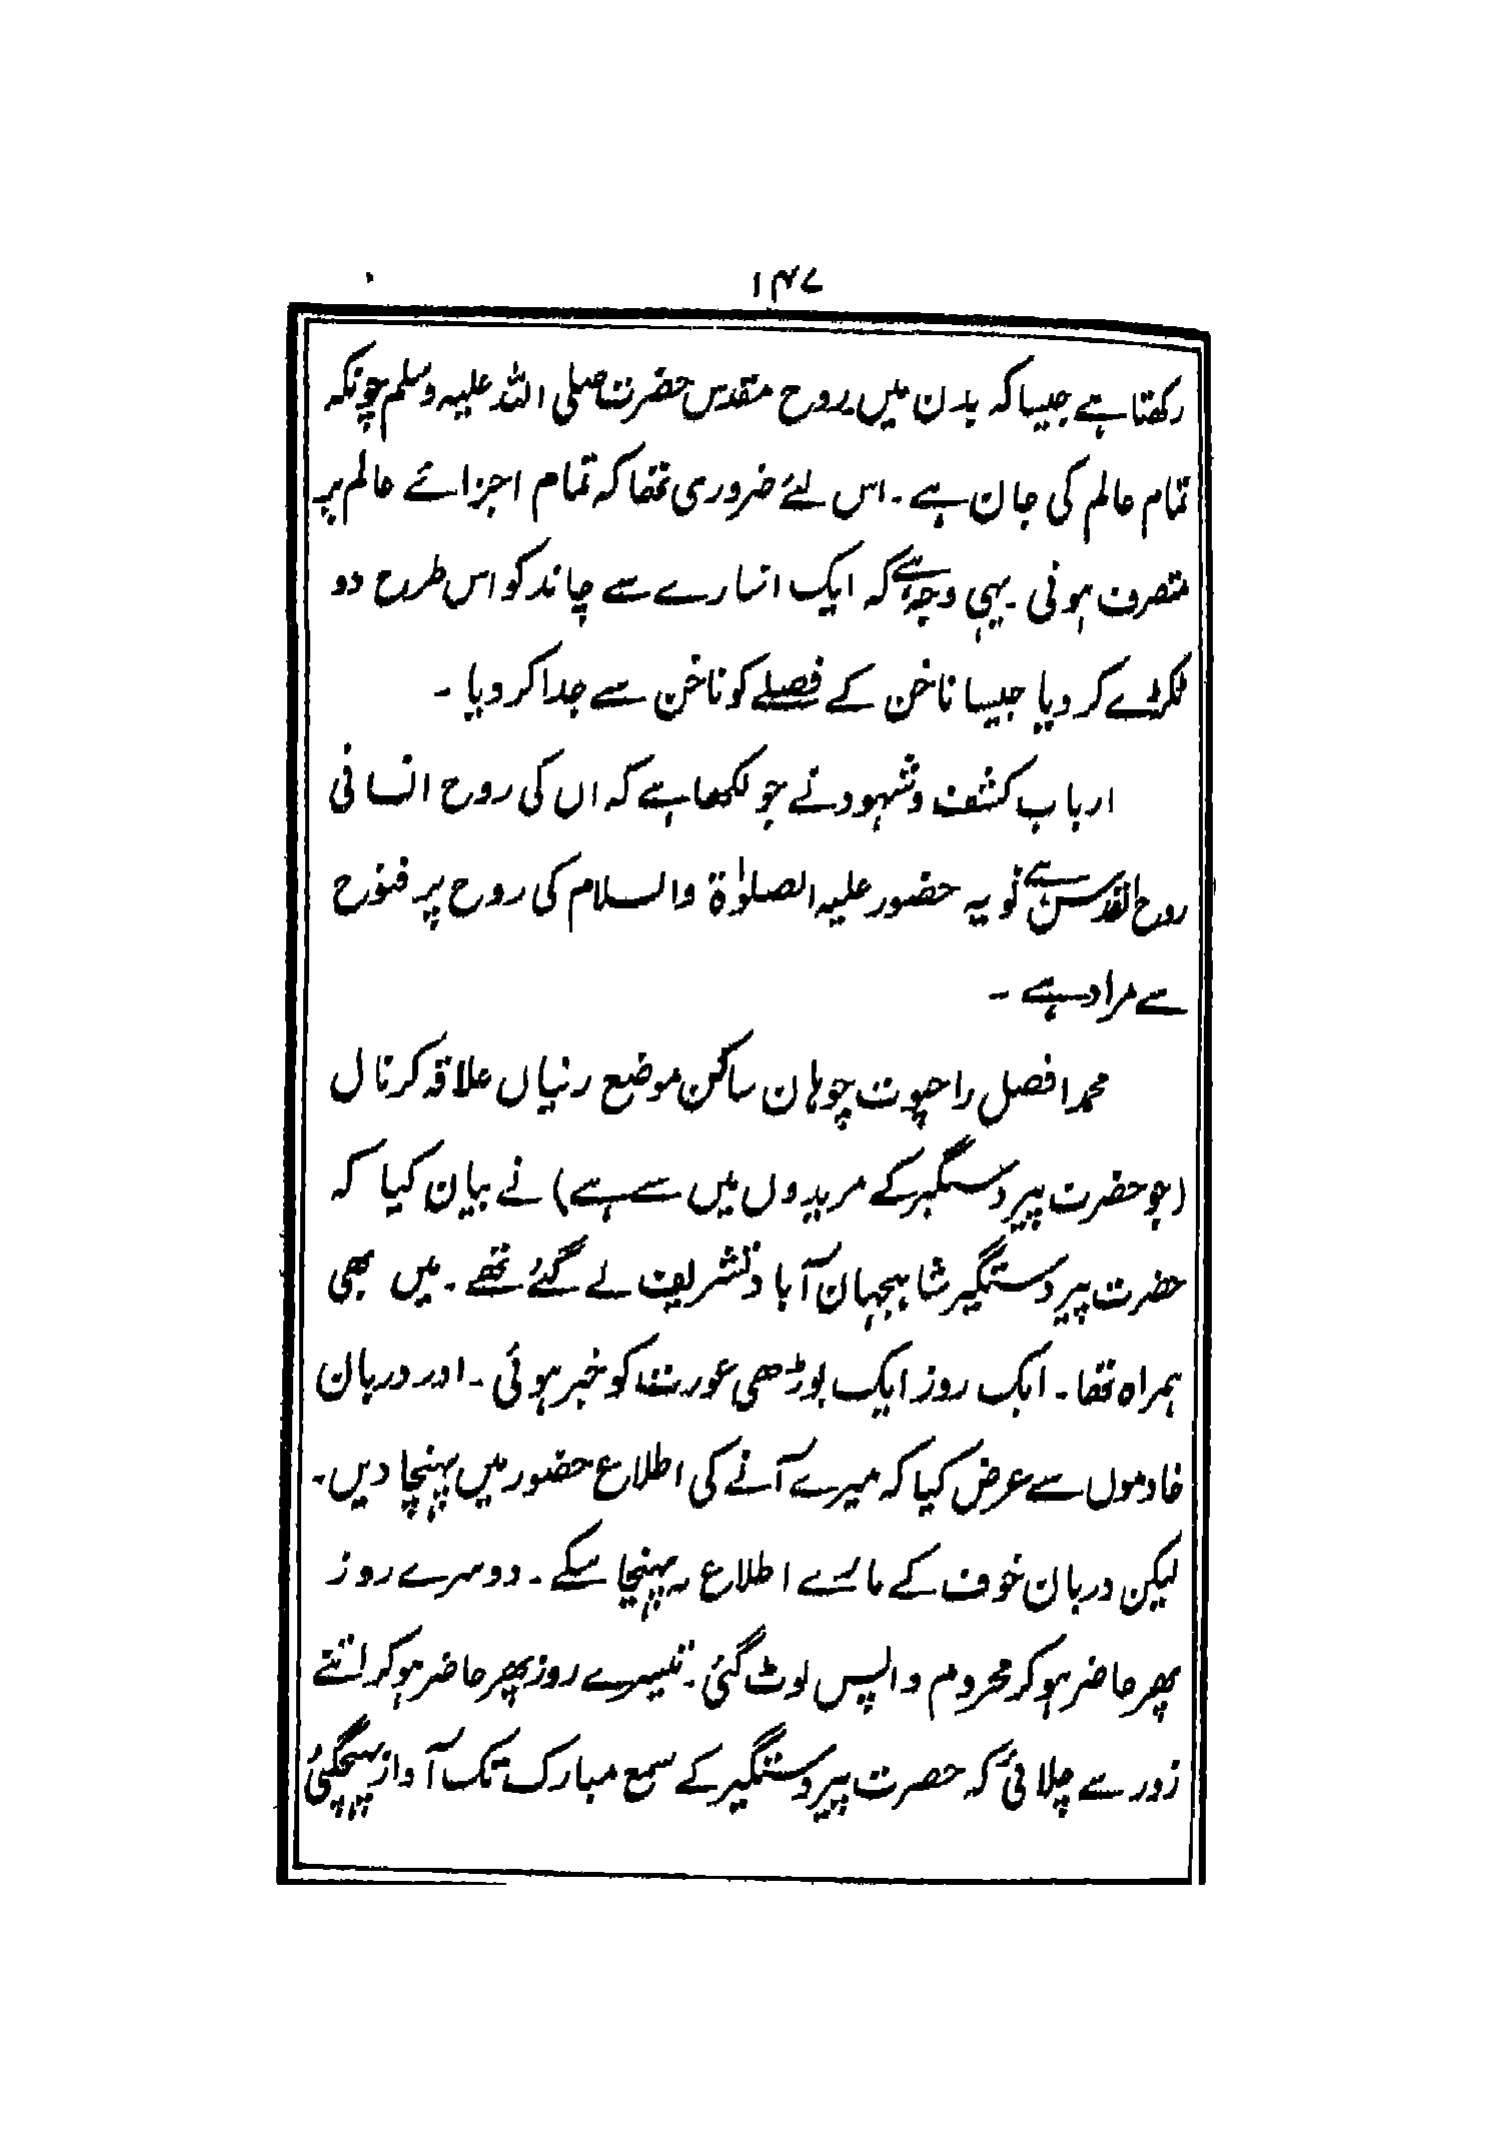 ۱۴۷
رکھتا ہے جیسا کہ بدن میں۔ روح مقدس حضرت صلی اللہ علیہ وسلم چونکہ
تمام عالم کی جان ہے ۔ اس لئے ضروری تھا کہ تمام اجزائے عالم پر
متصرف ہوتی ۔ یہی وجہ ہے کہ ایک اشارے سے چاند کو اس طرح دو
ٹکڑے کر دیا جیسا ناخن کے فصیلے کو ناخن سے جدا کر دیا ۔
ارباب کشف و شہود نے جو لکھا ہے کہ اں کی روح انسانی
روح القدس ہے تو یہ حضور علیہ الصلوٰۃ والسلام کی روح پر فتوح
سے مراد ہے ۔
محمد افضل راجپوت چوہان ساکن موضع رنیاں علاقہ کرنال
(جو حضرت پیر دستگیر کے مریدوں میں سے ہے) نے بیان کیا کہ
حضرت پیر دستگیر شاہجہان آباد تشریف لے گئے تھے ۔ میں بھی
ہمراہ تھا ۔ ایک روز ایک بوڑھی عورت کو خبر ہوئی ۔ اور دربان
خادموں سے عرض کیا کہ میرے آنے کی اطلاع حضور میں پہنچا دیں ۔
لیکن دربان خوف کے مارے اطلاع نہ پہنچا سکے ۔ دوسرے روز
پھر حاضر ہو کر محروم واپس لوٹ گئی ۔ تیسرے روز پھر حاضر ہو کر اتنے
زور سے چلائی کہ حضرت پیر دستگیر کے سمع مبارک تک آواز پہنچ گئی